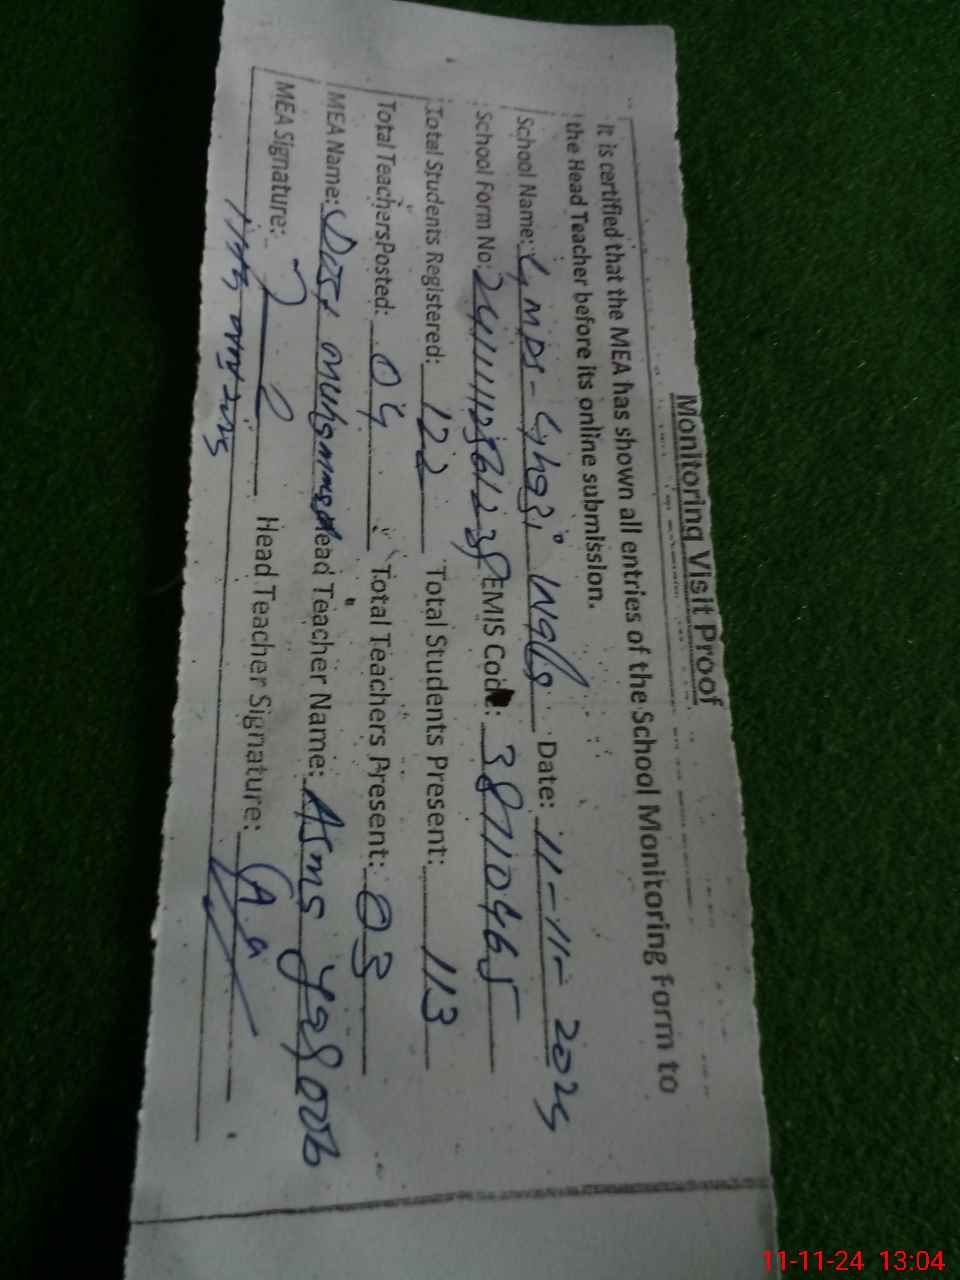 Monitoring Visit Proof
It is certified that the MEA has shown all entries of the School Monitoring Form to
the Head Teacher before its online submission.
School Name: GMPS - Ghazi Wala Date: 11-11-2024
School Form No: EMIS Code: 38710465
Total Students Registered: 122 Total Students Present: 113
Total Teachers Posted: 04 Total Teachers Present: 03
MEA Name: Dost Muhammad Head Teacher Name: Asma Yaqoob
MEA Signature: Head Teacher Signature:
11-11-24 13:04